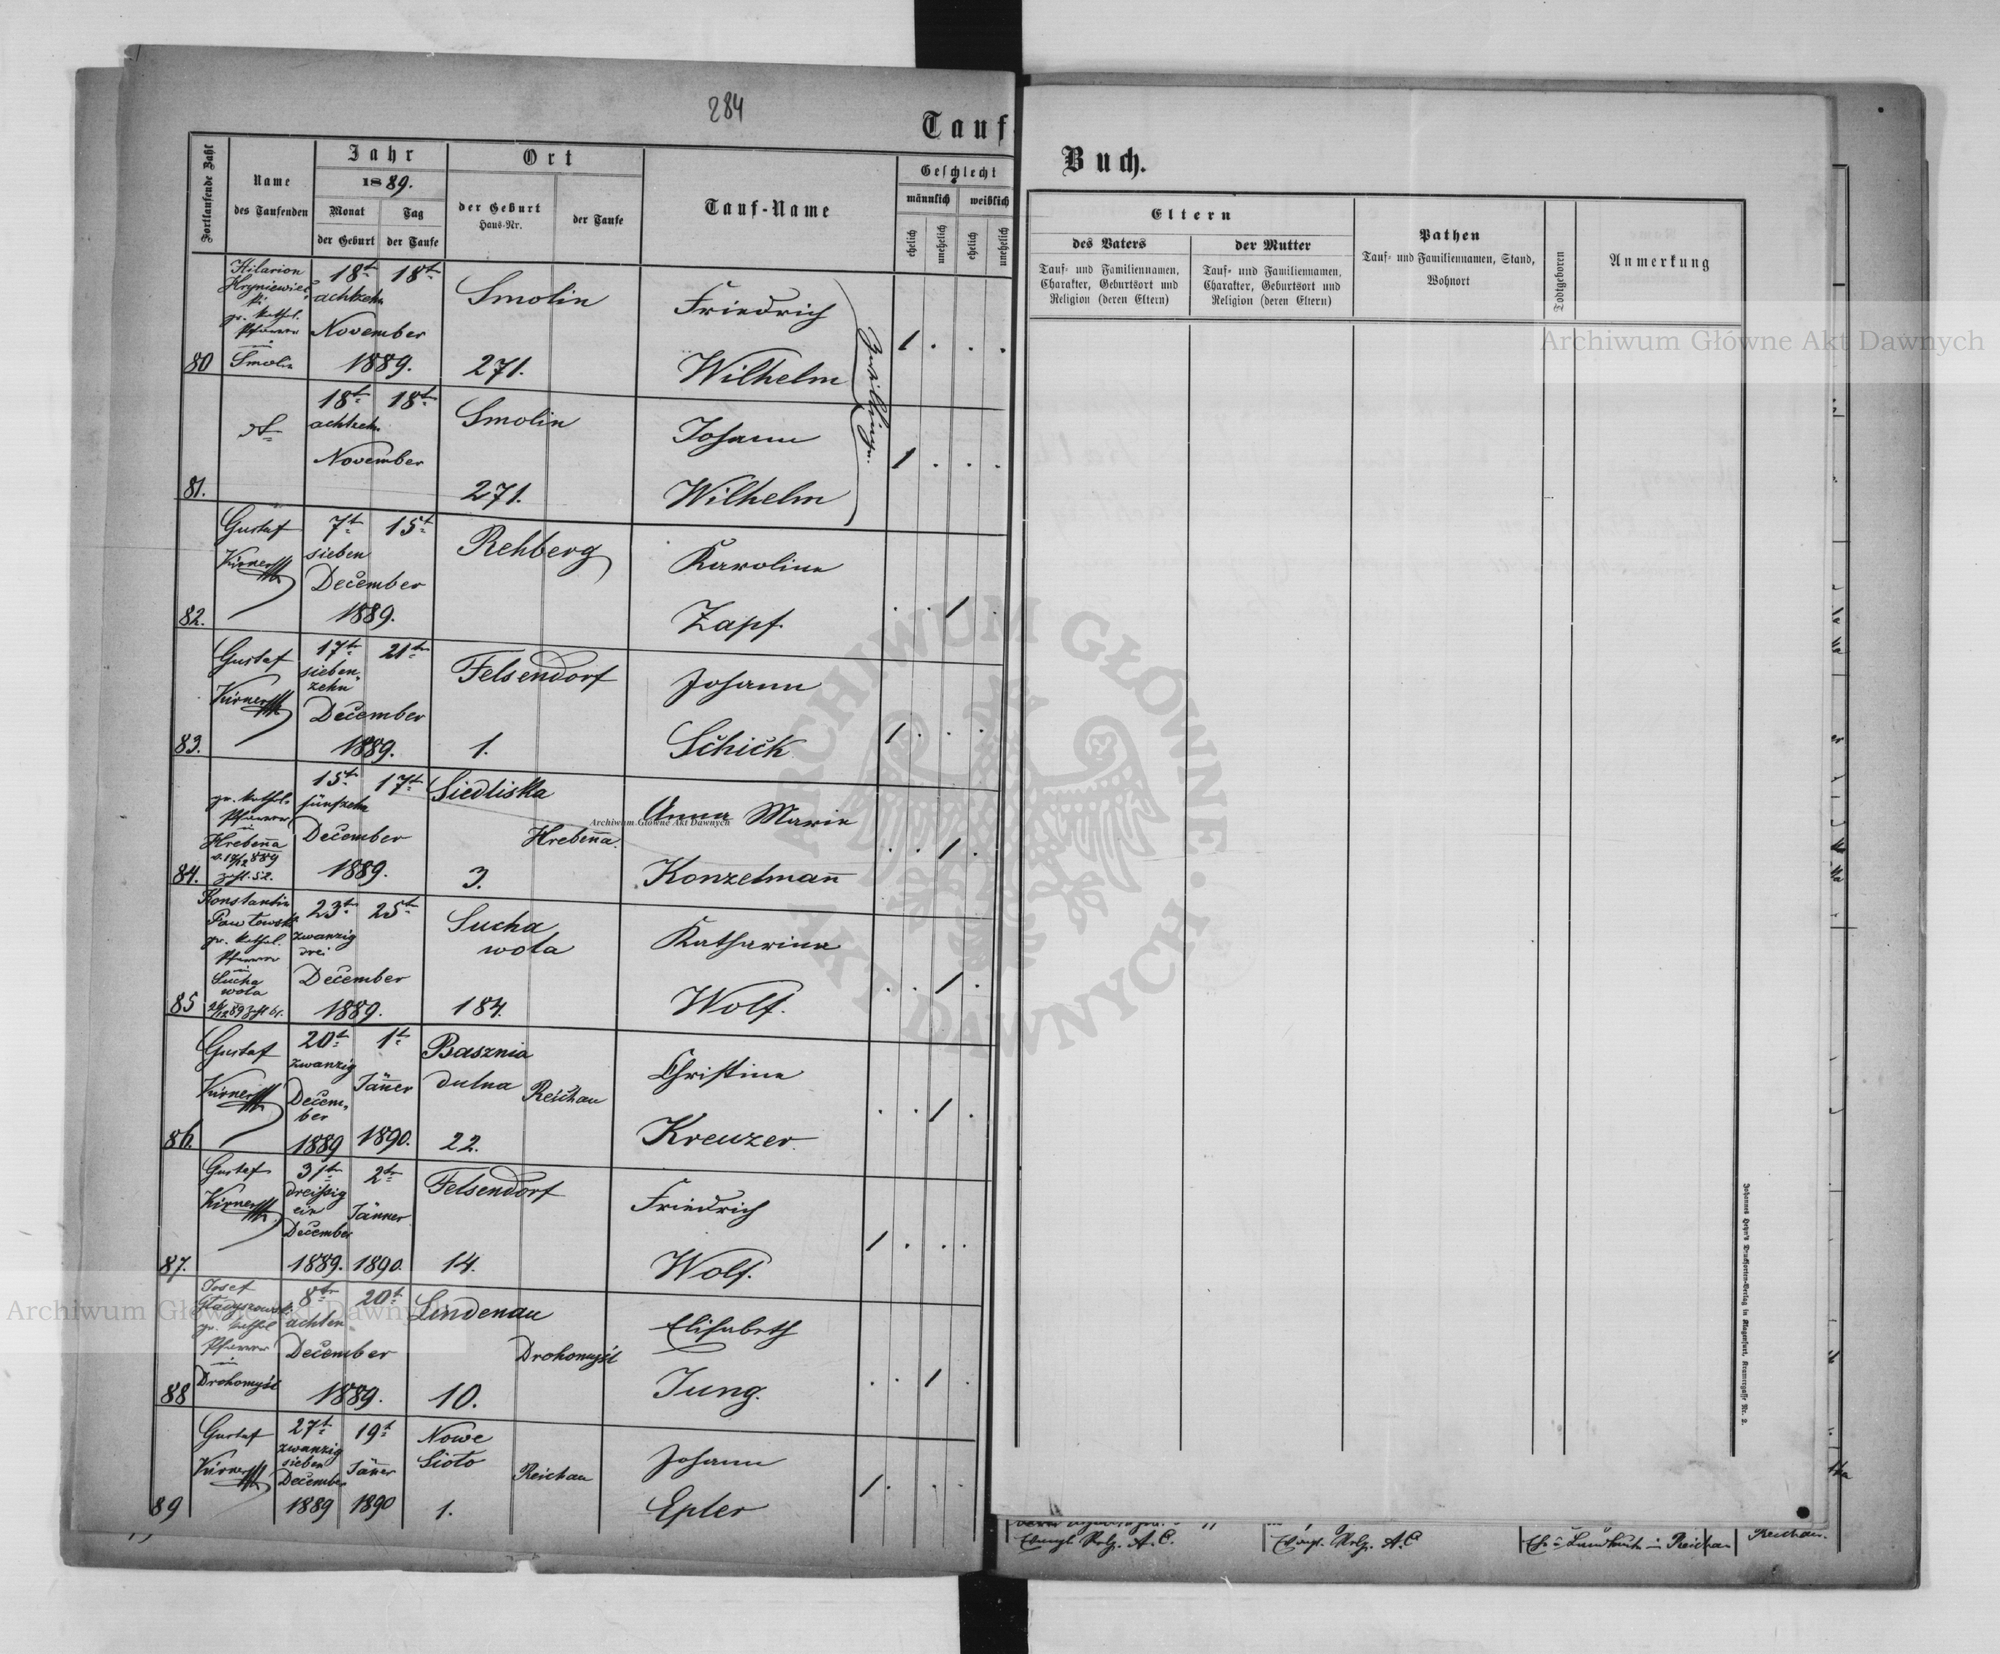 284
Tauf-
Fortlaufende Zahl
Name
des Taufenden
Jahr
1889.
Monat
der Geburt
Tag
der Taufe
Ort
der Geburt
Haus-Nr.
der Taufe
Tauf-Name
Geschlecht
männlich
weiblich
ehelich
unehelich
ehelich
unehelich
80
Hilarion
gr. kathol.
Pfarrer
Smolin
18t 18t
achtzehn
November
1889.
Smolin
271.
Friedrich
Wilhelm
Zwillinge.
1 . . .
81.
18t 18t
achtzehn
November
Smolin
271.
Johann
Wilhelm
1 . . .
82.
Gustaf
Kirner
7t 15t
sieben
December
1889.
Rehberg
Karoline
Zapf.
. . 1 .
83.
Gustaf
Kirner
17t 21t
sieben
zehn
December
1889.
Felsendorf
1.
Johann
Schick
1 . . .
84.
gr. kathol.
Pfarrer
in
Hrebenna
15t 17t
fünfzehn
December
1889.
Siedliska
Hrebenna.
3.
Anna Marie
Konzelmann
. . 1 .
85
Konstantin
gr. kathol.
Pfarrer
in
Sucha
wola
23t 25t
zwanzig
drei
December
1889.
Sucha
wola
184.
Katharina
Wolf.
. . 1 .
86.
Gustaf
Kirner
20t 1t
zwanzig
Decem-
ber
1889
Jänner
1890.
Basznia
dulna
Reichau
22.
Christine
Kreuzer.
. . 1 .
87.
Gustaf
Kirner
31t 2t
dreißig
ein
December
1889.
Jänner
1890.
Felsendorf
14.
Friedrich
Wolf.
1 . . .
88
Josef
gr. kathol
Pfarrer
in
Drohomyśl
8t 20t
achten
December
1889.
Lindenau
Drohomyśl
10.
Elisabeth
Jung.
. . 1 .
89
Gustaf
Kirner
27t 19t
zwanzig
sieben
December
1889
Jänner
1890
Nowe
Sioło
Reichau
1.
Johann
Epler
1 . . .
Buch.
Eltern
des Vaters
Tauf- und Familiennamen,
Charakter, Geburtsort und
Religion (deren Eltern)
der Mutter
Tauf- und Familiennamen,
Charakter, Geburtsort und
Religion (deren Eltern)
Pathen
Tauf- und Familiennamen, Stand,
Wohnort
Todtgeboren
Anmerkung
Johannes Heyn's Drucksorten-Verlag in Klagenfurt, Kramergasse Nr. 2.
Evangl. Relg. A.C.
Evngl. Relg. A.C
Reichau
Reichau.
Archiwum Główne Akt Dawnych
Archiwum Główne Akt Dawnych
Archiwum Główne Akt Dawnych
ARCHIWUM GŁÓWNE AKT DAWNYCH